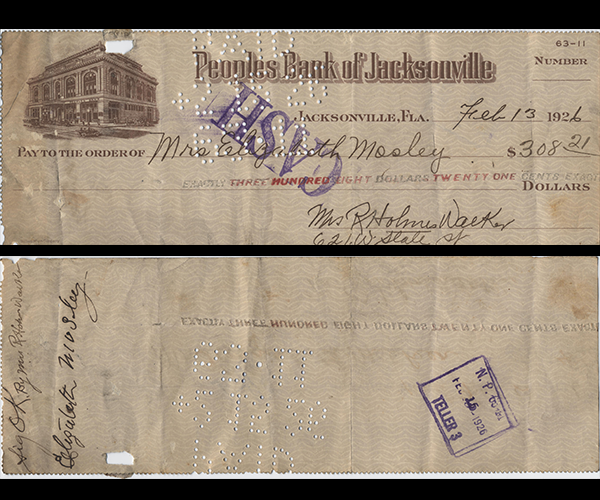 63-11
Peoples Bank of Jacksonville
NUMBER
JACKSONVILLE, FLA. Feb 13 1926
PAY TO THE ORDER OF Mrs Elizabeth Mosley $308.21
CASH
EXACTLY THREE HUNDRED EIGHT DOLLARS TWENTY ONE CENTS EXACTLY
DOLLARS
Mrs R Holmes Walker
621 W State St
Sig OK By Mrs R Holmes Walker
Elizabeth Mosley
EXACTLY THREE HUNDRED EIGHT DOLLARS TWENTY ONE CENTS EXACTLY
N. P.
FEB 1926
TELLER 3